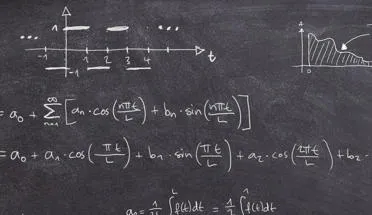 1
-1 1 2 3 4 t
-1
= a₀ + ∞ Σ n=1 [aₙ·cos(nπt/L) + bₙ·sin(nπt/L)]
= a₀ + a₁·cos(πt/L) + b₁·sin(πt/L) + a₂·cos(2πt/L) + b₂·
∫ f(t)dt = ∫ f(t)dt